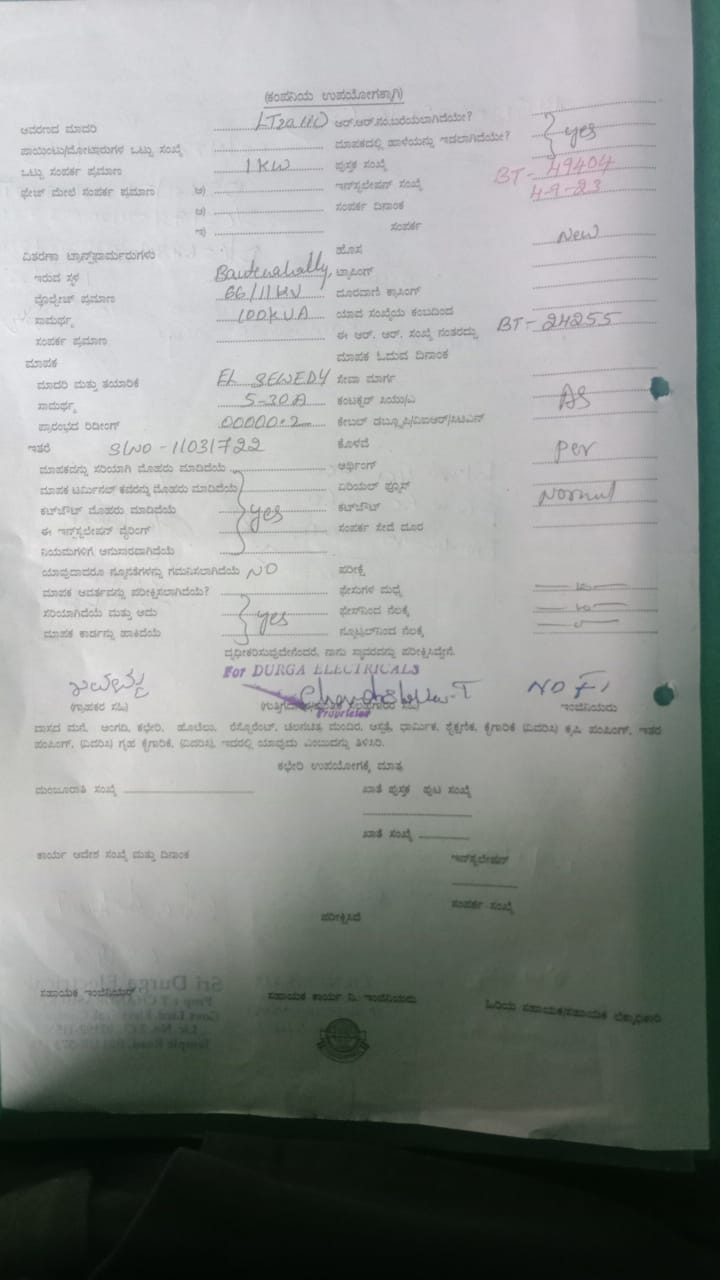 (ಕಂಪನಿಯ ಉಪಯೋಗಕ್ಕಾಗಿ)
ಆವರಣದ ಮಾದರಿ ಆರ್.ಆರ್.ನಂ.ಬರೆಯಲಾಗಿದೆಯೇ?
ಪಾಯಿಂಟು/ಮೋಟಾರುಗಳ ಒಟ್ಟು ಸಂಖ್ಯೆ ಮಾಪಕದಲ್ಲಿ ಹಾಳೆಯನ್ನು ಇಡಲಾಗಿದೆಯೇ? yes
ಒಟ್ಟು ಸಂಪರ್ಕ ಪ್ರಮಾಣ 1KW ಪುಸ್ತಕ ಸಂಖ್ಯೆ
ಫೇಜ್ ಮೇಲೆ ಸಂಪರ್ಕ ಪ್ರಮಾಣ ಅ) ಇನ್‌ಸ್ಟಲೇಷನ್ ಸಂಖ್ಯೆ BT-49404
ಆ) ಸಂಪರ್ಕ ದಿನಾಂಕ 4-9-23
ಇ) ಸಂಪರ್ಕ
ವಿತರಣಾ ಟ್ರಾನ್ಸ್‌ಫಾರ್ಮರುಗಳು ಹೊಸ New
ಇರುವ ಸ್ಥಳ ಟ್ರಾಸಿಂಗ್
ವೋಲ್ಟೇಜ್ ಪ್ರಮಾಣ 66/11KV ದೂರವಾಣಿ ಕ್ರಾಸಿಂಗ್
ಸಾಮರ್ಥ್ಯ 100KVA ಯಾವ ಸಂಖ್ಯೆಯ ಕಂಬದಿಂದ
ಸಂಪರ್ಕ ಪ್ರಮಾಣ ಈ ಆರ್. ಆರ್. ಸಂಖ್ಯೆ ನಂತರದ್ದು BT-24255
ಮಾಪಕ ಮಾಪಕ ಓದುವ ದಿನಾಂಕ
ಮಾದರಿ ಮತ್ತು ತಯಾರಿಕೆ EL SEWEDY ಸೇವಾ ಮಾರ್ಗ
ಸಾಮರ್ಥ್ಯ 5-30A ಕಂಟಕ್ಟರ್ ಸಿಯು/ಎ As
ಪ್ರಾರಂಭದ ರಿಡೀಂಗ್ 00000.2 ಕೇಬಲ್ ಡಬ್ಲ್ಯೂಪಿ/ವಿಐಆರ್/ಸಿಟಿಎಸ್
ಇತರೆ Sl No-11031722 ಕೊಳವೆ
ಮಾಪಕವನ್ನು ಸರಿಯಾಗಿ ಮೊಹರು ಮಾಡಿದೆಯೆ ಆರ್ಥಿಂಗ್ Per
ಮಾಪಕ ಟರ್ಮಿನಲ್ ಕವರನ್ನು ಮೊಹರು ಮಾಡಿದೆಯೆ ಏರಿಯಲ್ ಫ್ಯೂಸ್
ಕಟ್‌ಔಟ್ ಮೊಹರು ಮಾಡಿದೆಯೆ yes ಕಟ್‌ಔಟ್
ಈ ಇನ್‌ಸ್ಟಲೇಷನ್ ವೈರಿಂಗ್ ಸಂಪರ್ಕ ಸೇವೆ ದೂರ
ನಿಯಮಗಳಿಗೆ ಅನುಸಾರವಾಗಿದೆಯೆ
ಯಾವುದಾದರೂ ನ್ಯೂನತೆಗಳನ್ನು ಗಮನಿಸಲಾಗಿದೆಯೆ NO ಪರೀಕ್ಷೆ
ಮಾಪಕ ಆವರ್ತವನ್ನು ಪರೀಕ್ಷಿಸಲಾಗಿದೆಯೆ? ಫೇಸುಗಳ ಮಧ್ಯೆ
ಸರಿಯಾಗಿದೆಯೆ ಮತ್ತು ಅದು yes ಫೇಸ್‌ನಿಂದ ನೆಲಕ್ಕೆ
ಮಾಪಕ ಕಾರ್ಡನ್ನು ಹಾಕಿದೆಯೆ ನ್ಯೂಟ್ರಲ್‌ನಿಂದ ನೆಲಕ್ಕೆ
ದೃಢೀಕರಿಸುವುದೇನೆಂದರೆ, ನಾನು ಸ್ಥಾವರವನ್ನು ಪರೀಕ್ಷಿಸಿದ್ದೇನೆ.
For DURGA ELECTRICALS
Proprietor
(ಗ್ರಾಹಕರ ಸಹಿ) ಇಂಜಿನಿಯರು
ವಾಸದ ಮನೆ, ಅಂಗಡಿ, ಕಛೇರಿ, ಹೊಟೆಲು, ರೆಸ್ಟೋರೆಂಟ್, ಚಲನಚಿತ್ರ ಮಂದಿರ, ಆಸ್ಪತ್ರೆ, ಧಾರ್ಮಿಕ, ಶೈಕ್ಷಣಿಕ, ಕೈಗಾರಿಕೆ (ವಿವರಿಸಿ) ಕೃಷಿ ಪಂಪಿಂಗ್, ಇತರ
ಪಂಪಿಂಗ್, (ವಿವರಿಸಿ) ಗೃಹ ಕೈಗಾರಿಕೆ, (ವಿವರಿಸಿ), ಇದರಲ್ಲಿ ಯಾವುದು ಎಂಬುದನ್ನು ತಿಳಿಸಿರಿ.
ಕಛೇರಿ ಉಪಯೋಗಕ್ಕೆ ಮಾತ್ರ
ಮಂಜೂರಾತಿ ಸಂಖ್ಯೆ ಖಾತೆ ಪುಸ್ತಕ ಪುಟ ಸಂಖ್ಯೆ
ಖಾತೆ ಸಂಖ್ಯೆ
ಕಾರ್ಯ ಆದೇಶ ಸಂಖ್ಯೆ ಮತ್ತು ದಿನಾಂಕ ಇನ್‌ಸ್ಟಲೇಷನ್
ಸಂಪರ್ಕ ಸಂಖ್ಯೆ
ಪರೀಕ್ಷಿಸಿದೆ
ಸಹಾಯಕ ಇಂಜಿನಿಯರ್ ಸಹಾಯಕ ಕಾರ್ಯ ನಿ. ಇಂಜಿನಿಯರು ಹಿರಿಯ ಸಹಾಯಕ/ಸಹಾಯಕ ಲೆಕ್ಕಾಧಿಕಾರಿ